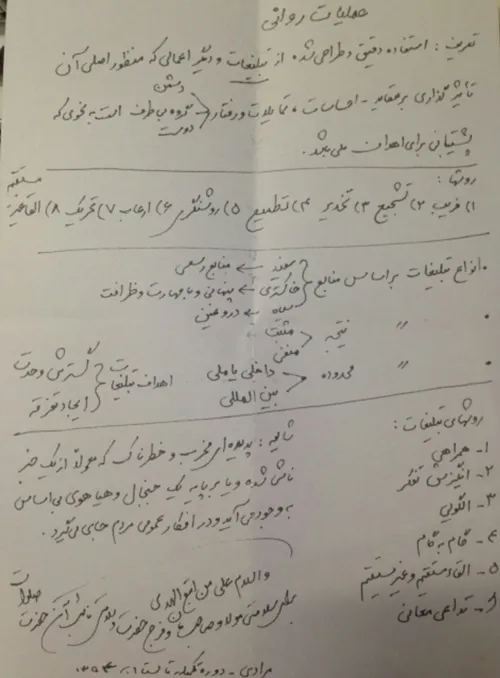 عملیات روانی
تعریف: استفاده دقیق و طراحی شده از تبلیغات و دیگر اعمالی که منظور اصلی آن
تأثیرگذاری بر عقاید - احساسات، تمایلات و رفتار دشمن گروه بی طرف دوست است به نحوی که
پشتیبانی برای اهداف ملی باشد.
روشها:
۱) فریب ۲) تشجیع ۳) تخدیر ۴) تطمیع ۵) روشنگری ۶) ارعاب ۷) تحریک ۸) القا غیر مستقیم
• انواع تبلیغات براساس منابع
سفید ← منابع رسمی
خاکستری ← پنهانی و با مهارت و ظرافت
سیاه ← دروغین
• " نتیجه
مثبت
منفی
• " محدوده
داخلی یا ملی
بین المللی
اهداف تبلیغات
گسترش وحدت
ایجاد تفرقه
روشهای تبلیغات:
۱- همراهی
۲- انگیزش تفکر
۳- الگویی
۴- گام به گام
۵- القاء مستقیم و غیر مستقیم
۶- تداعی معانی
شایعه: پدیده ای مخرب و خطرناک که معمولاً از یک خبر
ناشی شده و یا بر پایه یک جنجال و هیاهوی بی اساس
به وجود می آید و در افکار عمومی مردم جای می گیرد.
والسلام علی من اتبع الهدی
برای سلامتی مولا و صاحب و فرج حضرت و سلامتی نائب آن حضرت صلوات
مرادی - دوره